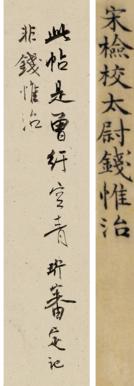 宋檢校太尉錢惟治
此帖是曾紆空青 珩審定記
非錢惟治